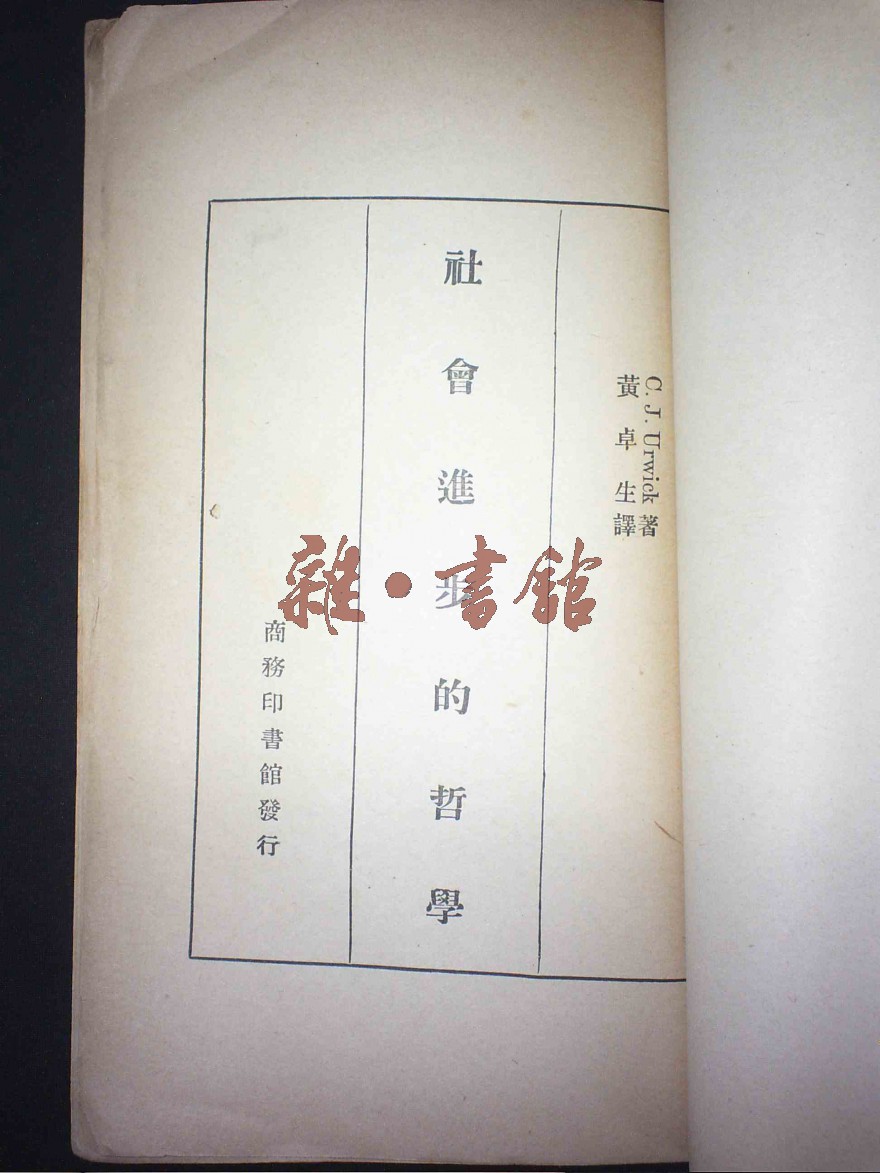 C. J. Urwick 著
黃卓生譯
社會進步的哲學
商務印書館發行
雜·書館